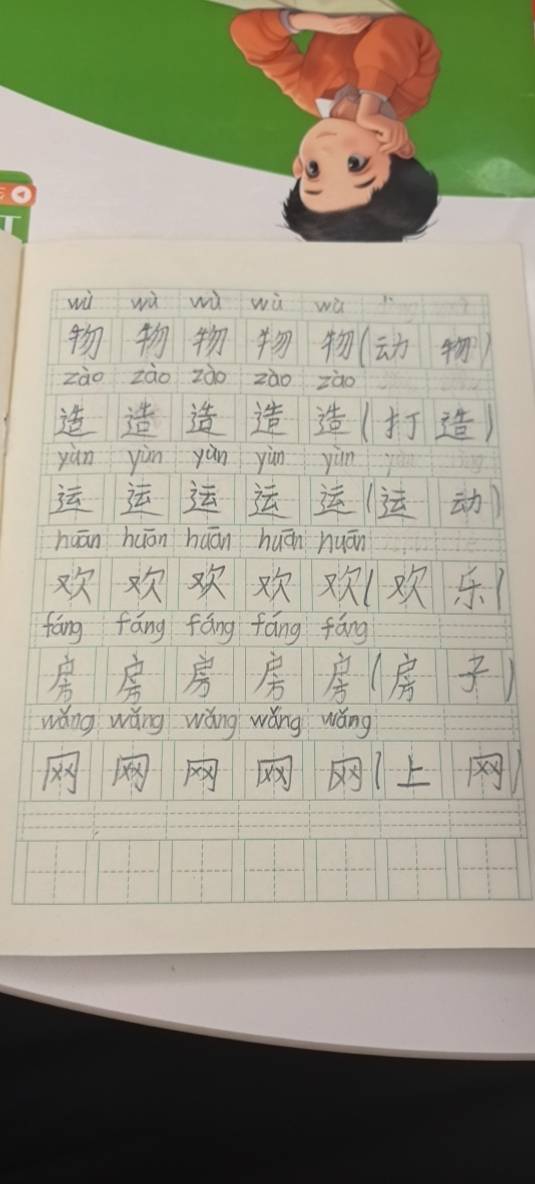 wù wù wù wù wù
物 物 物 物 物 (动 物)
zào zào zào zào zào
造 造 造 造 造 (打 造)
yùn yùn yùn yùn yùn
运 运 运 运 运 (运 动)
huān huān huān huān huān
欢 欢 欢 欢 欢 (欢 乐)
fáng fáng fáng fáng fáng
房 房 房 房 房 (房 子)
wǎng wǎng wǎng wǎng wǎng
网 网 网 网 网 (上 网)